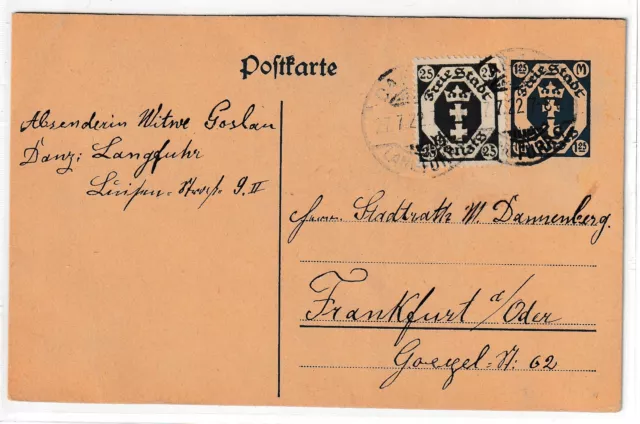 Postkarte
Absenderin Witwe Goslau
Danz: Langfuhr
Luisen-Straße 9. II
25 25
Freie Stadt
Danzig
25 25
1.25 M
Freie Stadt
Danzig
1.25
27.7.22
7.22
Herrn Stadtrath W. Dannenberg.
Frankfurt a/Oder
Goegel-St: 62